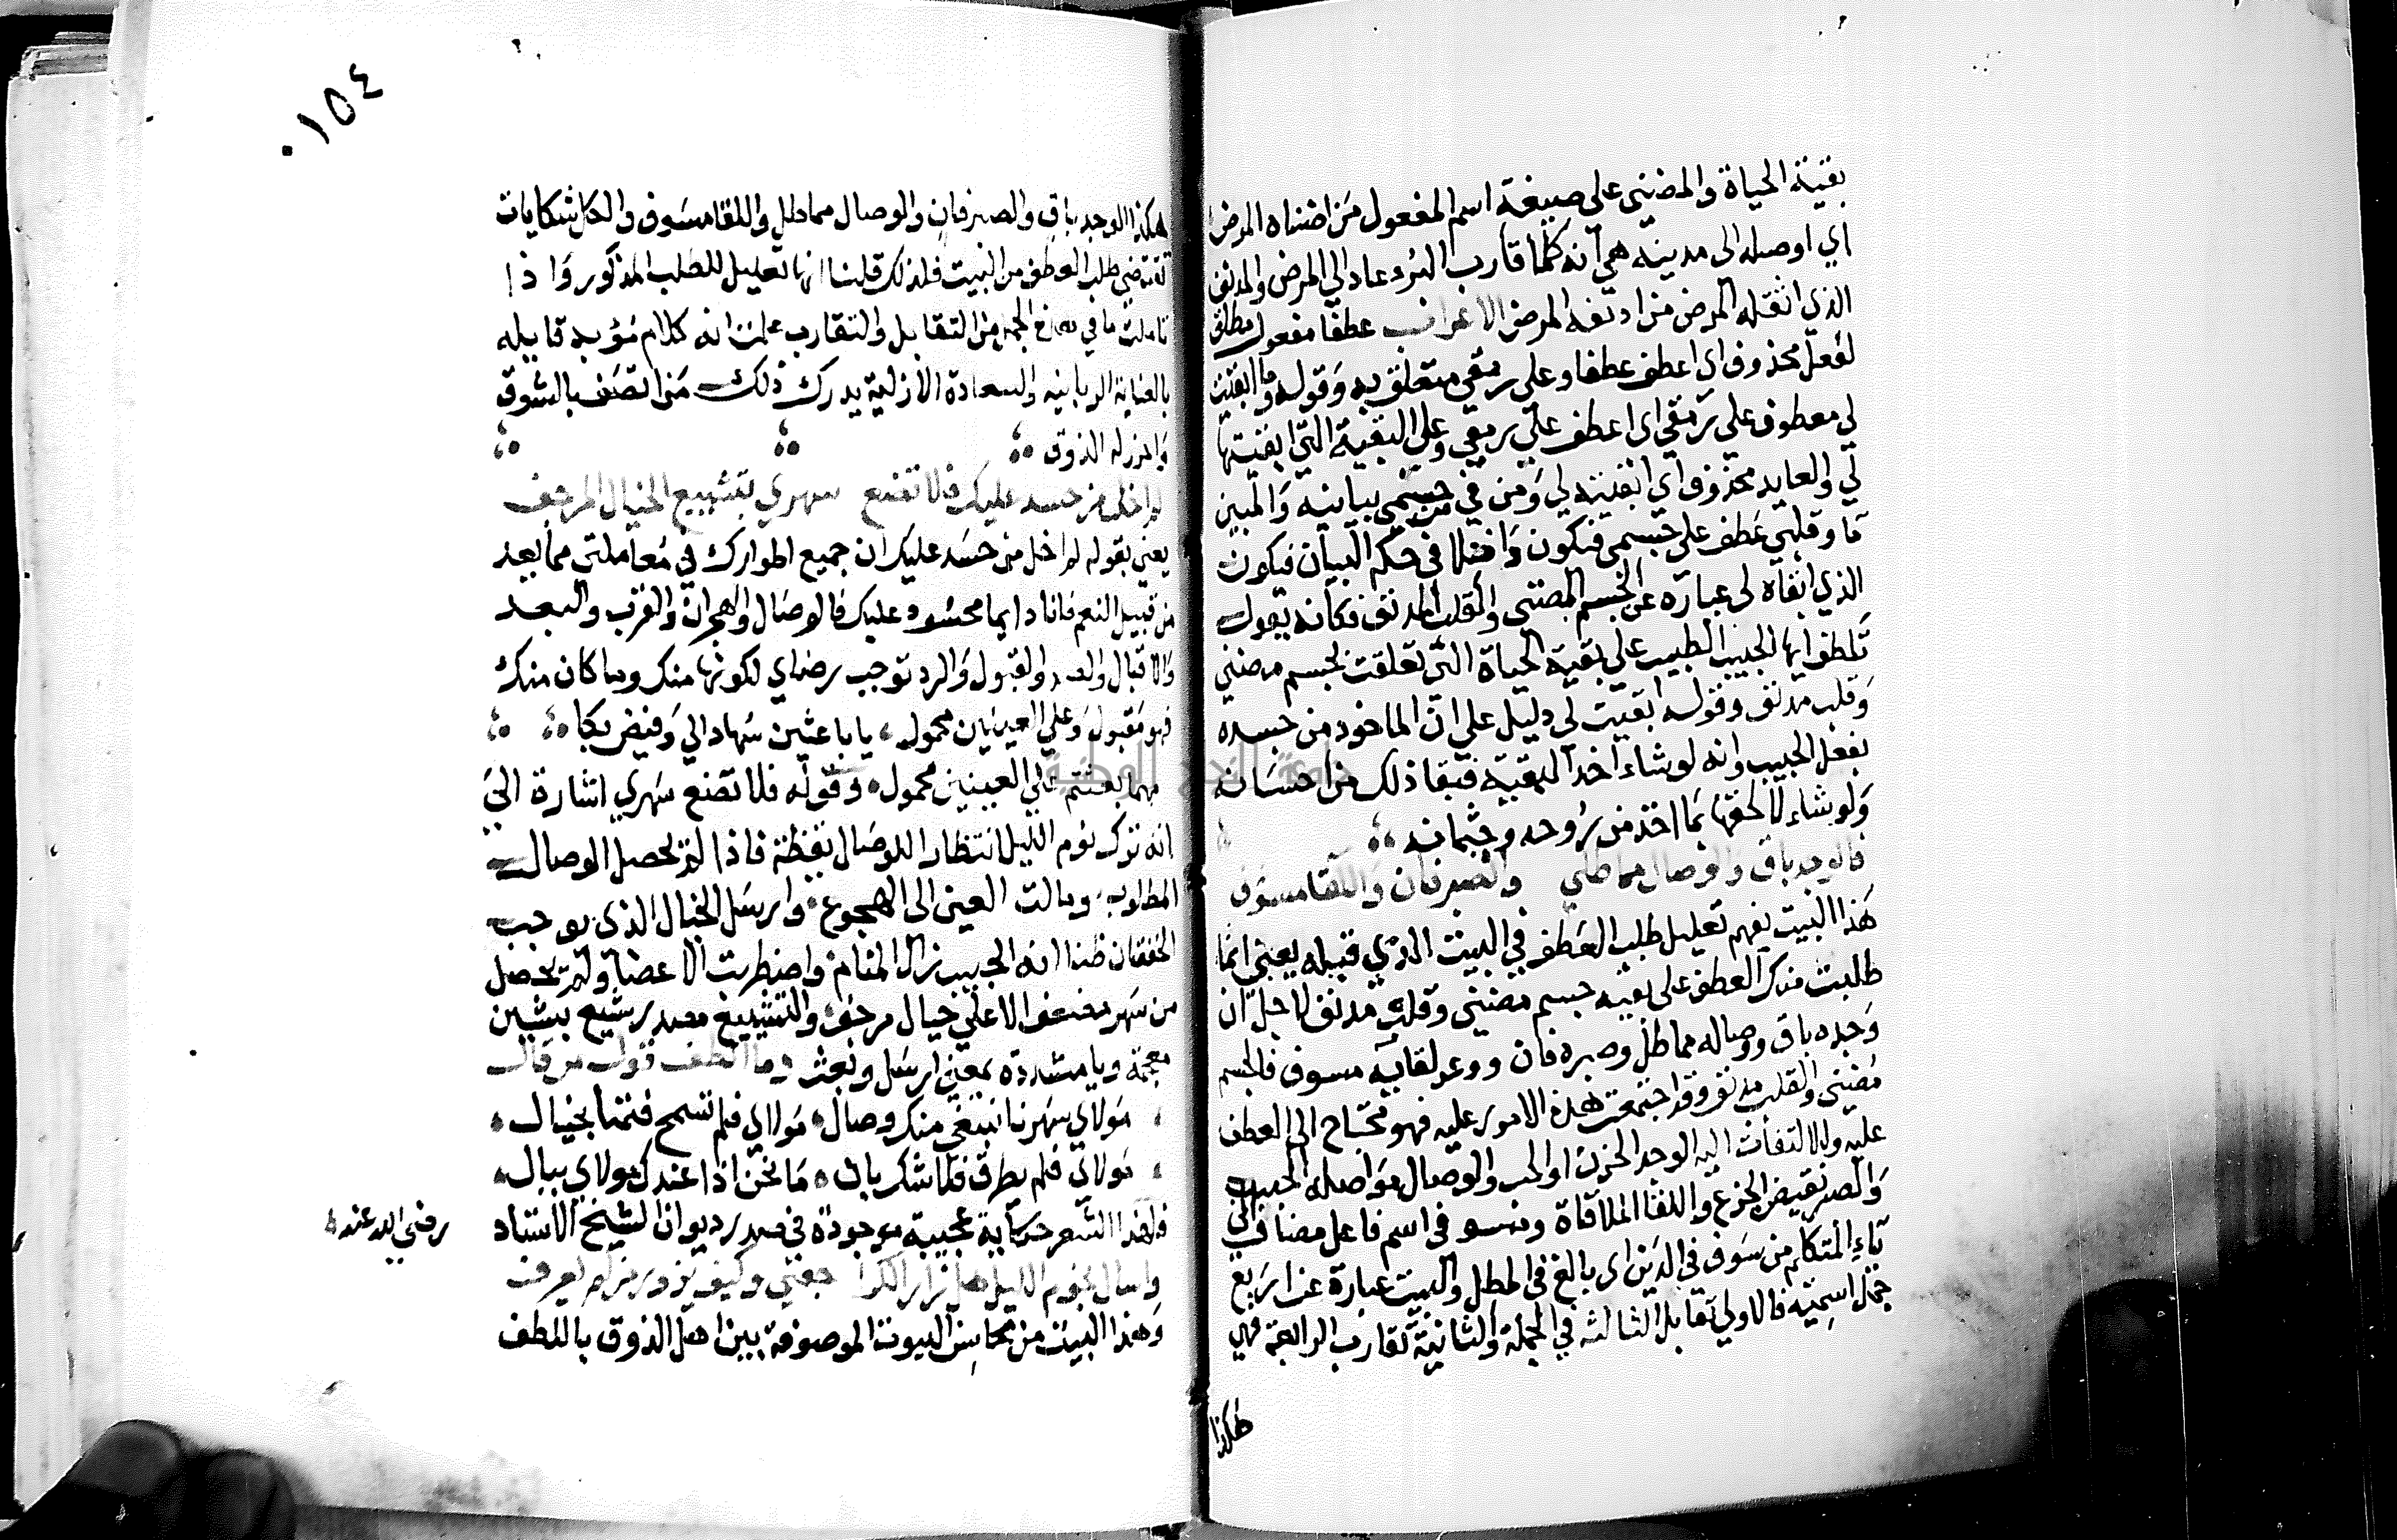 بقية الحياة والمضنى على صيغة اسم المفعول من اضناه المرض
اي اوصله الى مدينه هي انه كلما قارب البرء عاد الي المرض والمدنف
الذي اثقله المرض من ادنفه المرض الاعراب عطفا مفعول مطلق
لفعل محذوف اي اعطف عطفا وعلى رمقي متعلق به وقوله وما ابقيت
لي معطوف علي رمقي اي اعطف علي رمقي وعلى البقية التي ابقيتها
لي والعايد محذوف اي ابقيته لي ومن في من جسمي بيانيه والمبين
ما وقلبي عطف على جسمي فتكون داخلا في حكم البيان فيكون
الذي ابقاه لى عبارة عن الجسم المضنى والقلب المدنف فكانه يقول
تلطف ايها الحبيب الطبيب على بقية الحياة التي تعلقت بجسم مضني
وقلب مدنف وقوله ابقيت لي دليل علي ان الماخوذ من جسده
بفعل الحبيب وانه لو شاء اخذ البقية فبقا ذلك من احسانه
ولو شاء لالحقها بما اخذ من روحه وجثمانه
فالوجد باق والوصال مماطلي والصبر فان واللقا مسوفي
هذا البيت يفهم تعليل طلب العطف في البيت الذي قبله يعني انما
طلبت منك العطف على بقية جسم مضنى وقلب مدنف لاجل ان
وجده باق ووصاله مماطل وصبره فان ووعد لقايه مسوف فالجسم
مضنى والقلب مدنف وقد اجتمعت هذه الامور عليه فهو محتاج الى العطف
عليه والالتفات اليه الوجد الحزن او الحب والوصال مواصلة الحبيب
والصبر نقيض الجزع واللقا الملاقاة ومسوفي اسم فاعل مضاف الى
ياء المتكلم من سوف في الدين اي بالغ في المطل والبيت عبارة عن اربع
جمل اسمية فالاولي تقابل الثالثه في الجملة والثانية تقارب الرابعة فهي
هكذا
٠١٥٤
هكذا الوجد باق والصبر فان والوصال مماطل واللقا مسوف والكل شكايات
تقتضي طلب العطف من البيت فلذلك قلنا انها تعليل للطلب المذكور واذا
تاملت ما في هذا الجمل من التقابل والتقارب علمت انه كلام مؤيد قايله
بالعناية الربانيه والسعادة الازلية يدرك ذلك من اتصف بالشوق
الذوق
لم اخل من حسد عليك فلا تضع سهري بتشييع الخيال المرجف
يعني بقوله لم اخل من حسد عليك ان جميع اطوارك في معاملتي مما يعد
من قبيل النعم فانا دايما محسود عليك فالوصال والهجران والقرب والبعد
والاقبال والصد والقبول والرد توجب رضاي لكونها منك وما كان منك
فهو مقبول وعلي العينين محمول يا باعثين سهادا لي وفيض بكا
مهما بعثتم علي العينين محمول وقوله فلا تضع سهري اشارة الى
انه ترك نوم الليل انتظارا للوصال يقظة فاذا لم يحصل الوصال
المطلوب ومالت العين الى الهجوع وارسل الخيال الذي يوجب
الخفقان ظنا انه الحبيب زال المنام واضطربت الاعضا ولم تحصل
من سهر مضعف الا علي خيال مرجف والتشييع مصدر شيع بشين
معجمة ويا مشددة بمعنى ارسل وبعث وما الطف قول من قال
مولاي سهرنا نبتغي منك وصال مولاي فلم تسمح فنمنا بخيال
مولاي فلم يطرق فلا شك بان ما نحن اذا عندك مولاي ببال
ولهذا الشعر حكاية عجيبة موجودة في صدر ديوان الشيخ الاستاذ
رضي الله عنه
واسال نجوم الليل هل زار الكرا جفني وكيف يزور من لم يعرف
وهذا البيت من محاسن البيوت الموصوفة بين اهل الذوق باللطف